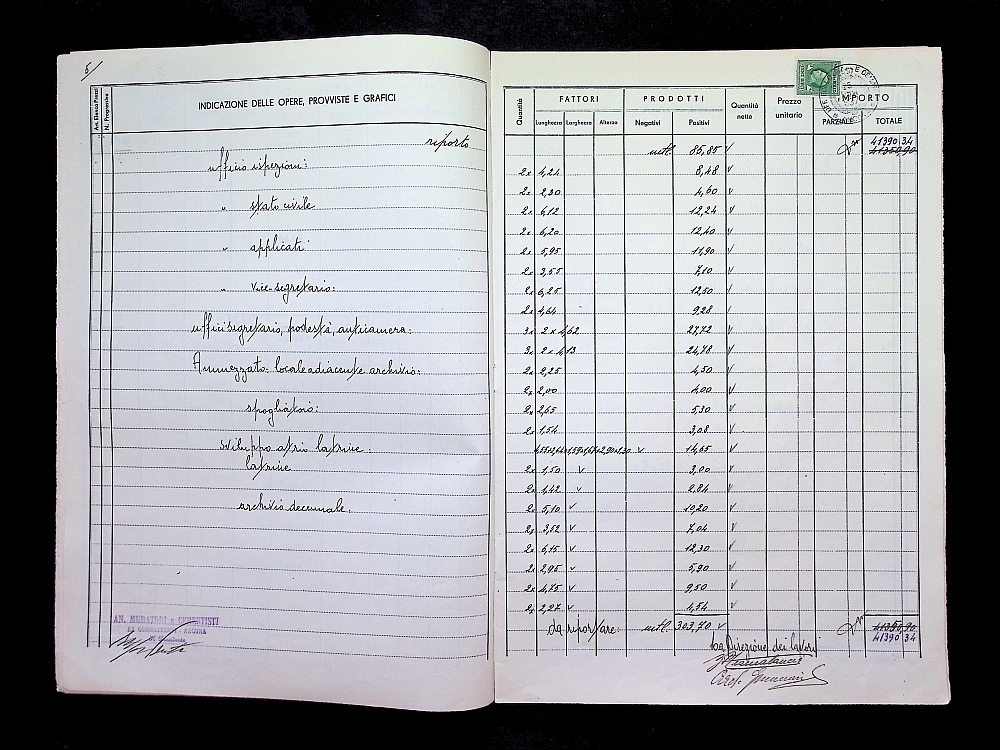 5/
An. Elenco Prezzi
N. Progressivo
INDICAZIONE DELLE OPERE, PROVVISTE E GRAFICI
riporto
ufficio ispezioni:
" stato civile
" applicati
" vice-segretario:
uffici segretario, podestà, anticamera:
Ammezzato: locale adiacente archivio:
spogliatoio:
sviluppo atrio latrine:
latrine
archivio decennale.
AN. MURATORI e CEMENTISTI
ANCONA
Quantità
FATTORI
PRODOTTI
Quantità nette
Prezzo unitario
IMPORTO
Lunghezza Larghezza Altezza Negativi Positivi PARZIALE TOTALE
mtl. 85,85 v 41390 34
41350,90
2x 4,24 8,48 v
2x 2,30 4,60 v
2x 6,12 12,24 v
2x 6,20 12,40 v
2x 5,95 11,90 v
2x 3,55 7,10 v
2x 6,25 12,50 v
2x 4,64 9,28
3x 2x4,62 27,72 v
3x 2x4,13 24,78 v
2x 2,25 4,50 v
2x 2,00 4,00 v
2x 2,65 5,30 v
2x 1,54 3,08 v
v 14,65 v
2x 1,50 v 3,00 v
2x 1,42 v 2,84 v
2x 5,10 v 10,20 v
2x 3,52 v 7,04 v
2x 6,15 v 12,30 v
2x 2,95 v 5,90 v
2x 4,75 v 9,50 v
2x 2,27 v 4,54 v
da riportare: mtl. 303,70 v 41350,90
41390 34
La Direzione dei lavori